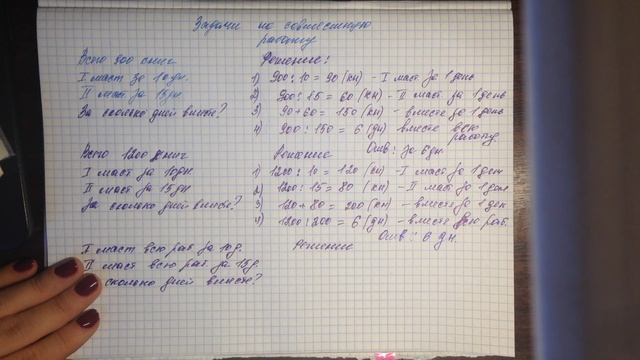 Задачи по совместную
работу
Всего 900 книг
Решение:
I маст за 10 дн.
II маст за 15 дн
За сколько дней вместе?
1) 900 : 10 = 90 (кн) - I маст за 1 день
2) 900 : 15 = 60 (кн) - II маст за 1 день
3) 90 + 60 = 150 (кн) - вместе за 1 день
4) 900 : 150 = 6 (дн) вместе всю
работу.
Отв: за 6 дн.
Всего 1200 книг
Решение
I маст за 10 дн.
II маст за 15 дн
за сколько дней вместе?
1) 1200 : 10 = 120 (кн) - I маст за 1 ден
2) 1200 : 15 = 80 (кн) - II маст за 1 ден.
3) 120 + 80 = 200 (кн) - вместе за 1 ден
4) 1200 : 200 = 6 (дн) - вместе всю раб.
Отв: 6 дн.
I маст всю раб за 10 д.
Решение
II маст всю раб. за 15 д.
сколько дней вместе?